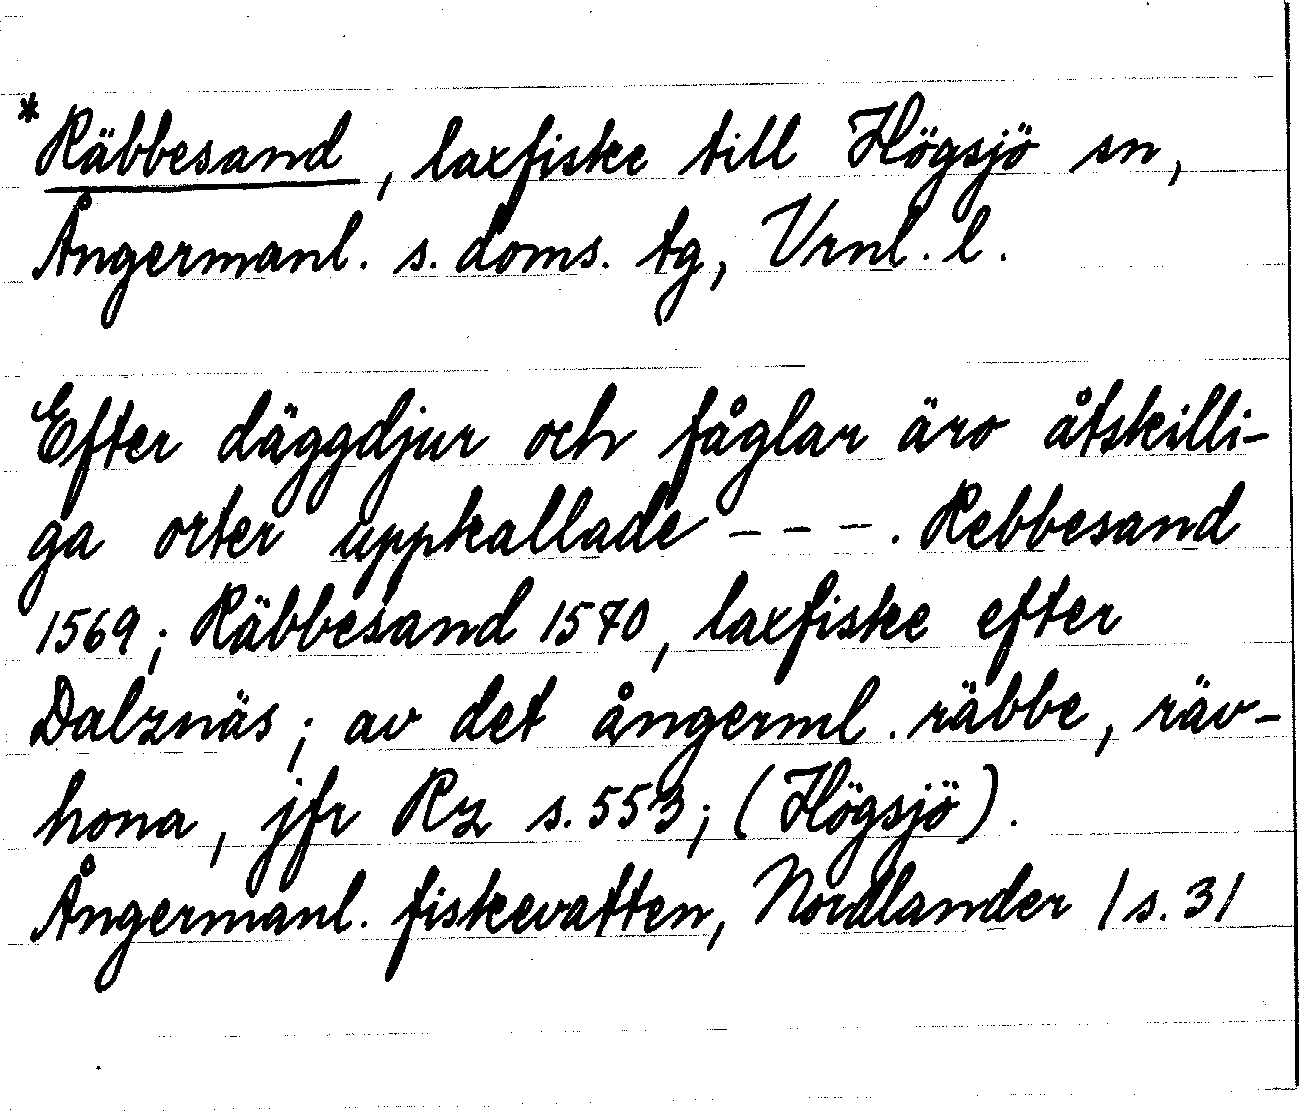 *Räbbesand, laxfiske till Högsjö sn,
Ångermanl. s. doms. tg, Vrnl. l.
Efter däggdjur och fåglar äro åtskilli-
ga orter uppkallade - - - . Rebbesand
1569; Räbbesand 1570, laxfiske efter
Dalznäs; av det ångerml. räbbe, räv-
hona, jfr Rz s. 553; (Högsjö).
Ångermanl. fiskevatten, Nordlander /s. 3/